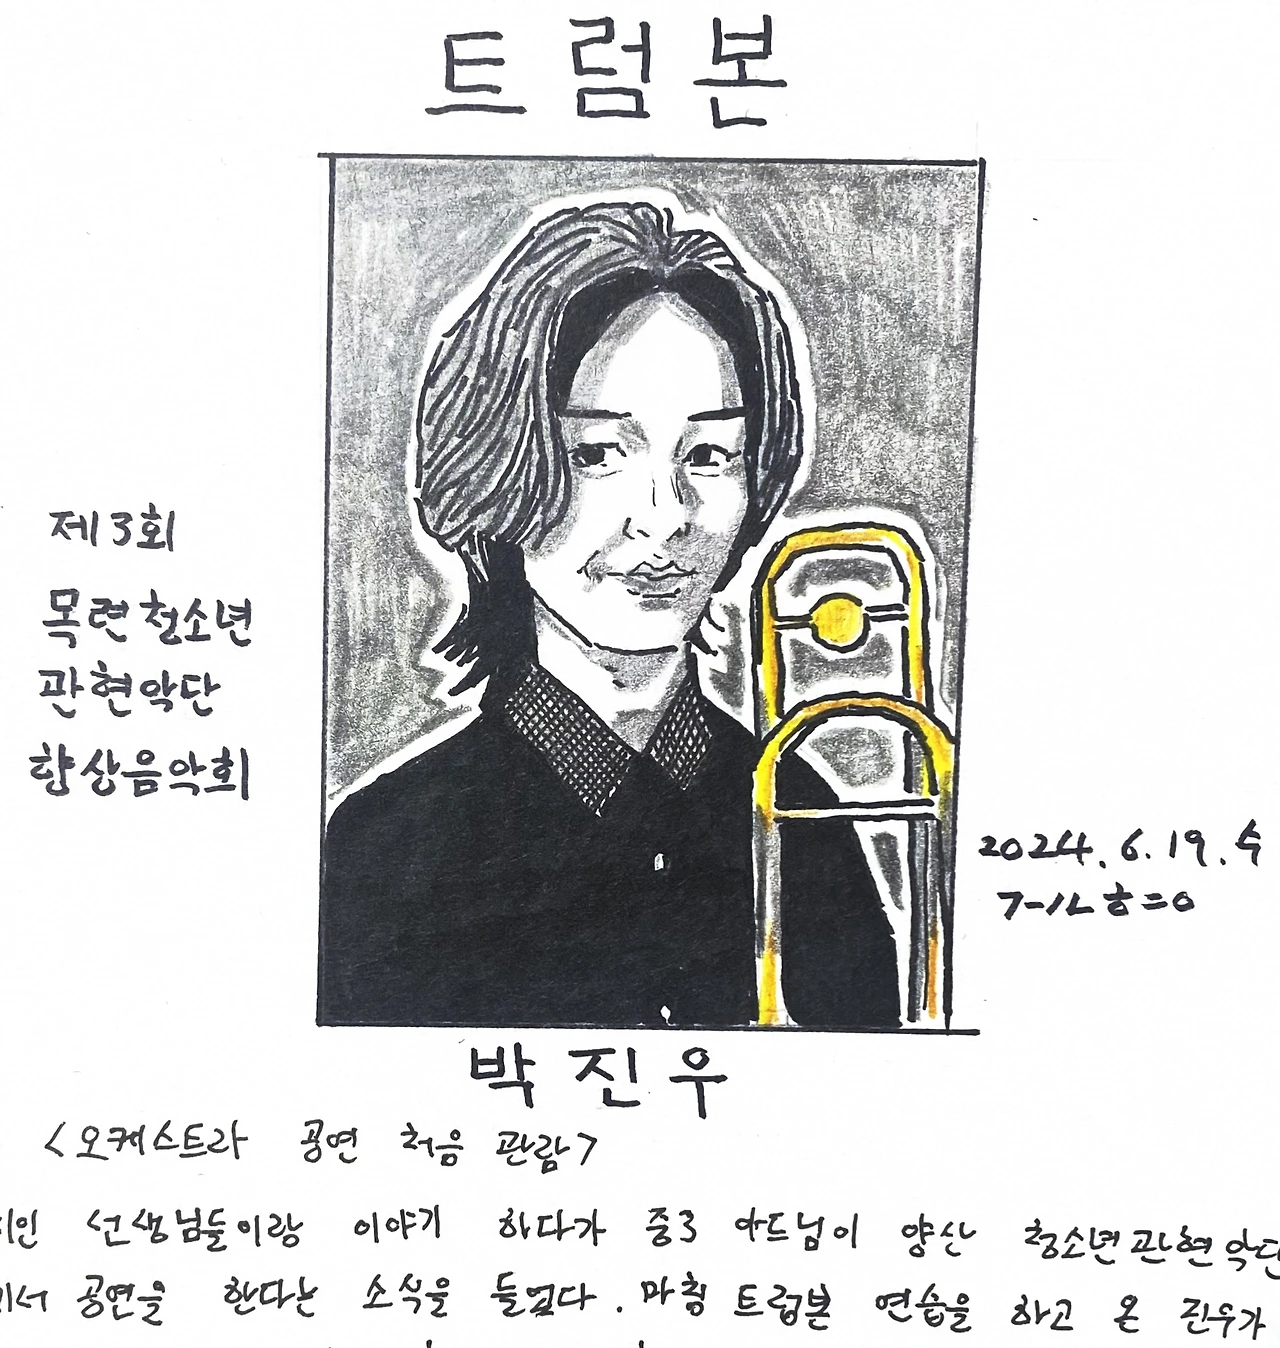 트럼본
제3회
목련청소년
관현악단
향상음악회
2024. 6. 19. 수
박진우
<오케스트라 공연 처음 관람>
지인 선생님들이랑 이야기 하다가 중3 아드님이 양산 청소년관현악단
에서 공연을 한다는 소식을 들었다. 마침 트럼본 연습을 하고 온 진우가